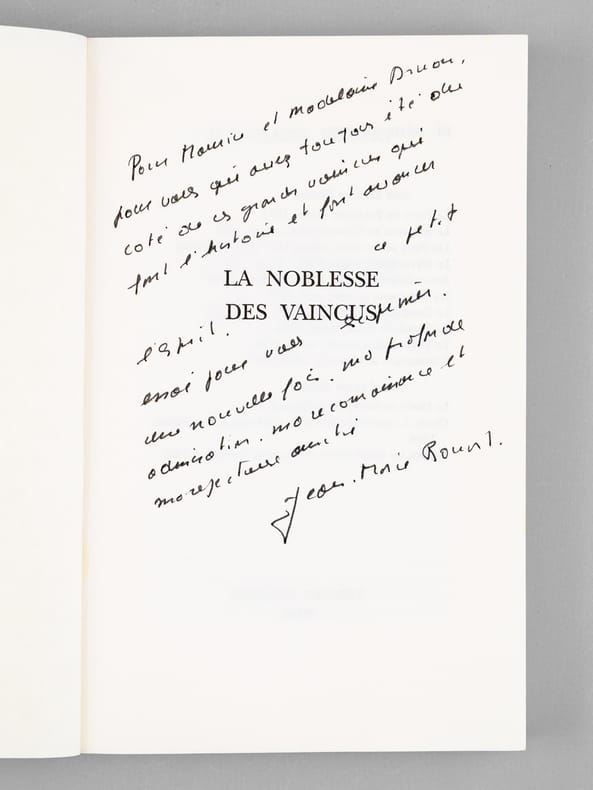 Pour Maurice et Madeleine Druon,
pour vous qui avez toujours été du
coté de ces grands vaincus qui
font l'histoire et font avancer
l'esprit. ce petit
LA NOBLESSE
DES VAINCUS
essai pour vous exprimer.
une nouvelle fois. ma profonde
admiration. ma reconnaissance et
ma respectueuse amitié
Jean-Marie Rouart.